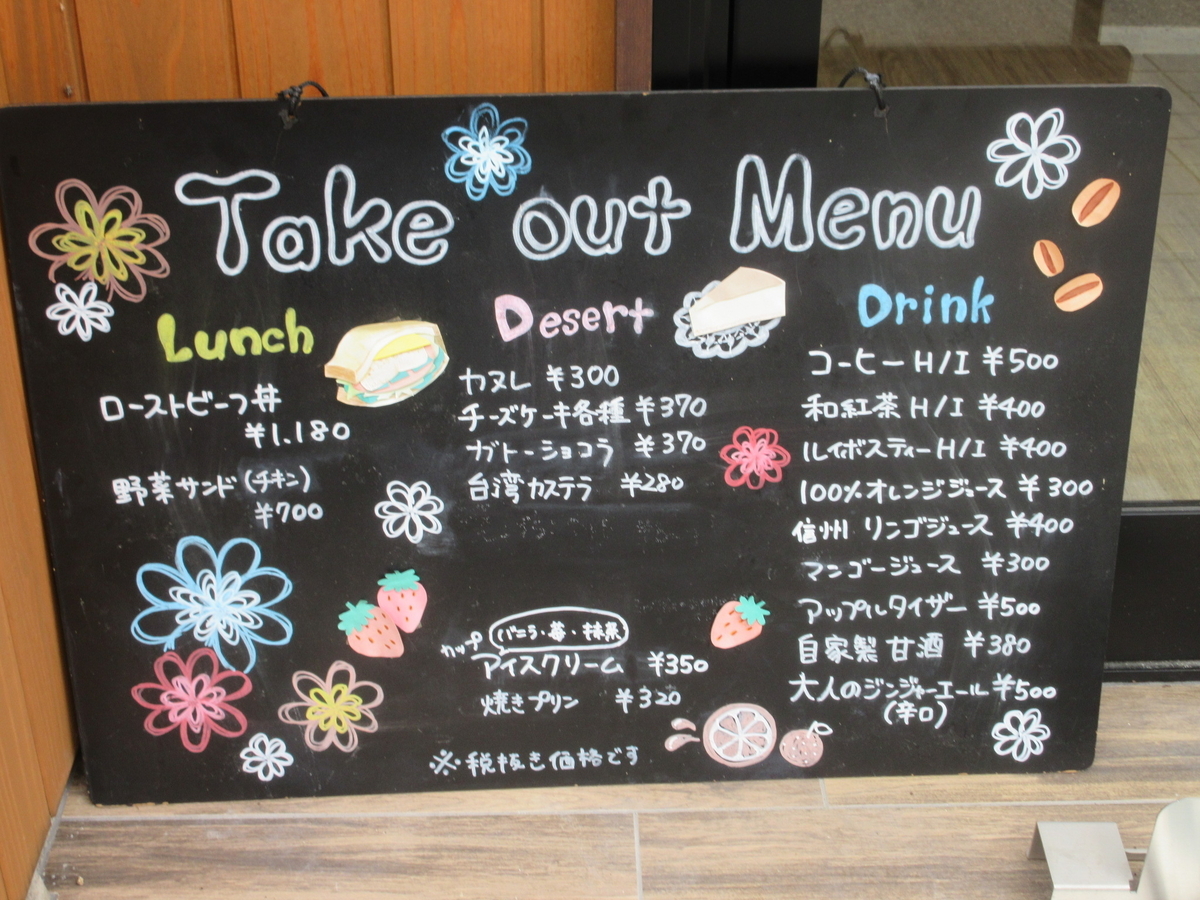 Take out Menu
Lunch
ローストビーフ丼
¥1.180
野菜サンド(チキン)
¥700
Desert
カヌレ ¥300
チーズケーキ各種 ¥370
ガトーショコラ ¥370
台湾カステラ ¥280
バニラ・苺・抹茶
カップ
アイスクリーム ¥350
焼きプリン ¥320
※税抜き価格です
Drink
コーヒーH/I ¥500
和紅茶H/I ¥400
ルイボスティーH/I ¥400
100%オレンジジュース ¥300
信州 リンゴジュース ¥400
マンゴージュース ¥300
アップルタイザー ¥500
自家製甘酒 ¥380
大人のジンジャーエール ¥500
(辛口)